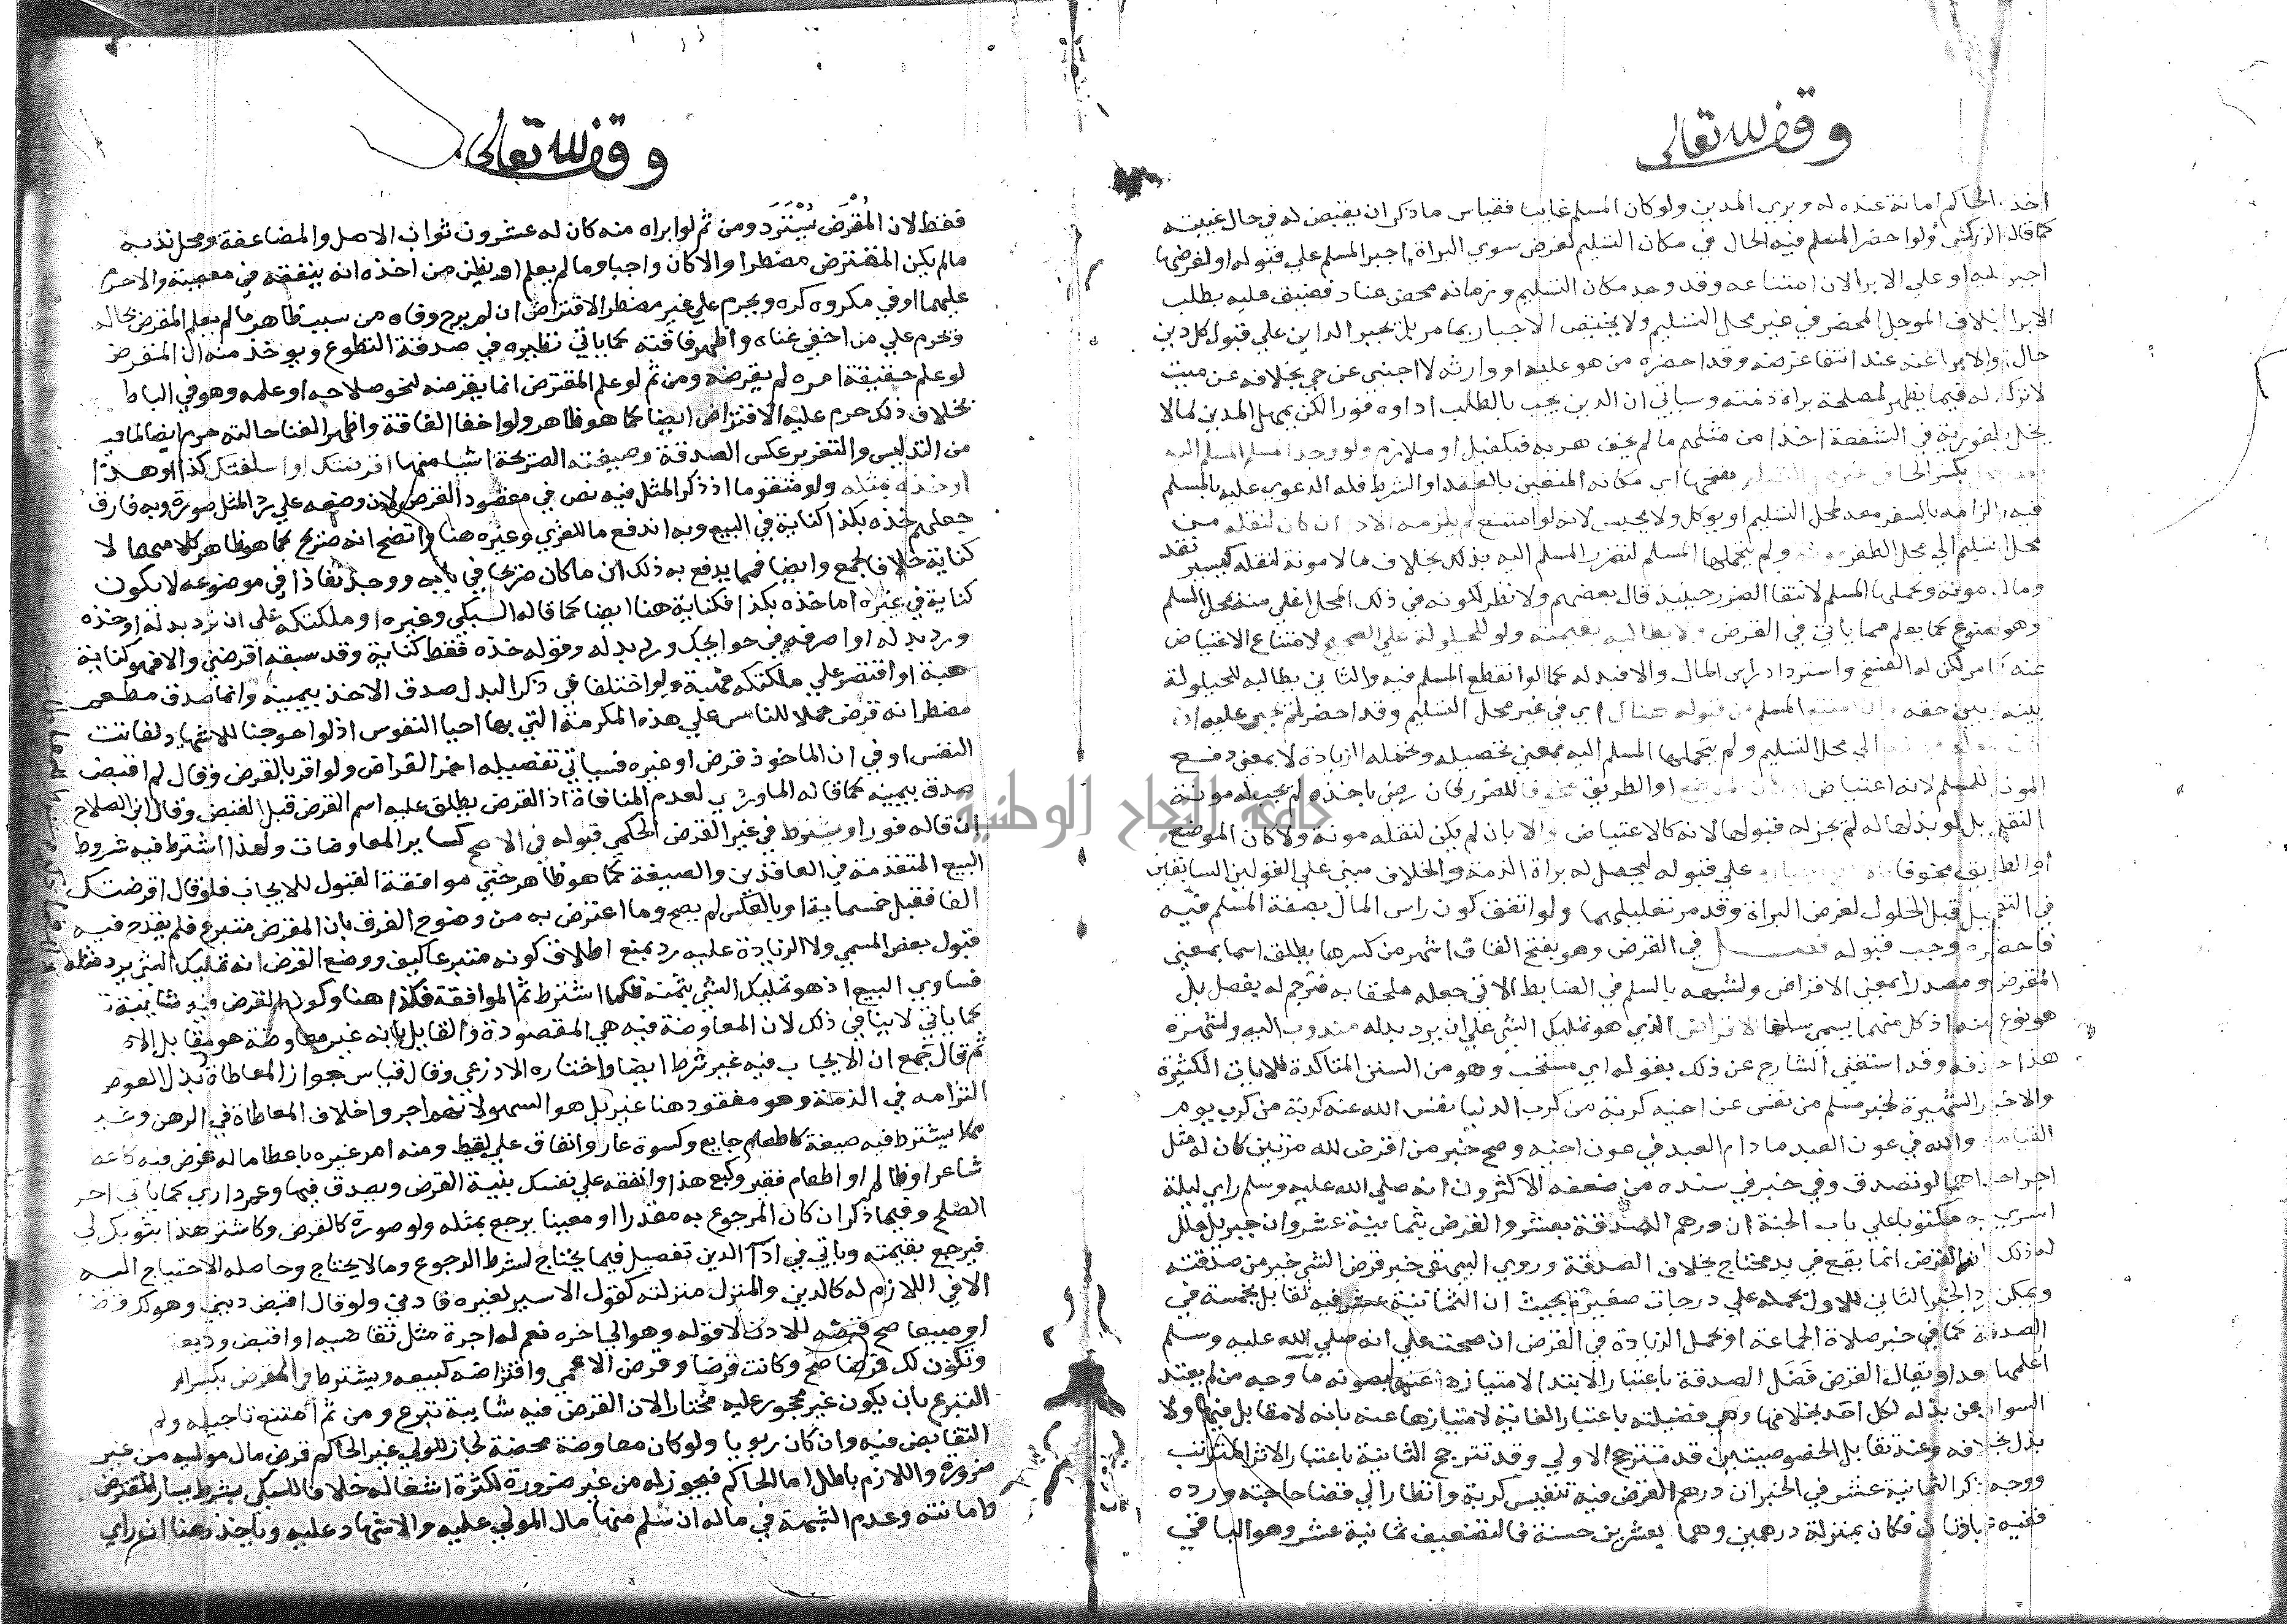 وقف لله تعالى
اخذ الحاكم امانة عنده له وبري المدين ولو كان المسلم غايبا فقياس ما ذكر ان يقبض له في حال غيبته
كما قال الزركشي ولو احضر المسلم فيه الحال في مكان التسليم لغرض سوي البراة اجبر المسلم علي قبوله او لغرضها
اجبر عليه او علي الابرا لان امتناعه وقد وجد مكان التسليم وزمانه محض عناد فضيق عليه بطلب
الابرا بخلاف الموجل المحضر في غير محل التسليم ولا يختص الاجبار بما مر بل يجبر الداين علي قبول كل دين
حال والابرا عنه عند انتفا غرضه وقد احضره من هو عليه او وارثه لا اجنبي عن حي بخلافه عن ميت
لا تركة له فيما يظهر لمصلحة براة ذمته وسياتي ان الدين يجب بالطلب اداوه فورا لكن يمهل المدين لما لا
يخل بالفورية في الشفعة اخذا من مثلهم ما لم يخف هربه فبكفيل او ملازم ولو وجد المسلم المسلم اليه
بكسر الحا في غير محل التسليم بفتحها اي مكانه المتعين بالعقد او الشرط فله الدعوي عليه بالمسلم
فيه والزامه بالسفر معه لمحل التسليم او يوكل ولا يحبس لانه لو امتنع لم يلزمه الادا ان كان لنقله من
محل التسليم الي محل الظفر مونة ولم يتحملها المسلم لتضرر المسلم اليه بذلك بخلاف ما لا مونة لنقله كيسير نقد
وما له مونة وتحملها المسلم لانتفا الضرر حينيذ قال بعضهم ولا نظر لكونه في ذلك المحل اغلي منه بمحل المسلم
وهو ممنوع كما يعلم مما ياتي في القرض ولا يطالبه بقيمته ولو للحيلولة علي الصحيح لامتناع الاعتياض
عنه كما مر لكن له الفسخ واسترداد راس المال والا فبدله كما لو انقطع المسلم فيه والثاني يطالبه للحيلولة
بينه وبين حقه وان امتنع المسلم من قبوله هناك اي في غير محل التسليم وقد احضر لم يجبر عليه ان
كان لنقله مونة الي محل التسليم ولم يتحملها المسلم اليه بمعني تحصيله وتحمله الزيادة لا بمعني دفع
المونة للمسلم لانه اعتياض او كان الموضع او الطريق مخوفا للضرر فان رضي باخذه لم يجب له مونة
النقل بل لو بذلها له لم يجز له قبولها لانه كالاعتياض والا بان لم يكن لنقله مونة ولا كان الموضع
او الطريق مخوفا فالاصح اجباره علي قبوله ليحصل له براة الذمة والخلاف مبني علي القولين السابقين
في التعجيل قبل الحلول لغرض البراة وقد مر تعليلهما ولو اتفق كون راس المال بصفة المسلم فيه
فاحضره وجب قبوله فصل في القرض وهو بفتح القاف اشهر من كسرها يطلق اسما بمعني
المقرض ومصدرا بمعني الاقراض ولشبهه بالسلم في الضابط الاتي جعله ملحقا به فترجم له بفصل بل
هو نوع منه اذ كل منهما يسمي سلفا الاقراض الذي هو تمليك الشي علي ان يرد بدله مندوب اليه ولشهرة
هذا حذفه وقد استغني الشارح عن ذلك بقوله اي مستحب وهو من السنن المتاكدة للايات الكثيرة
والاخبار الشهيرة لخبر مسلم من نفس عن اخيه كربة من كرب الدنيا نفس الله عنه كربة من كرب يوم
القيامة والله في عون العبد ما دام العبد في عون اخيه وصح خبر من اقرض لله مرتين كان له مثل
اجر احدهما لو تصدق وفي خبر في سنده من ضعفه الاكثرون انه صلي الله عليه وسلم راي ليلة
اسري به مكتوبا علي باب الجنة ان درهم الصدقة بعشر والقرض بثمانية عشر وان جبريل علل
له ذلك بان القرض انما يقع في يد محتاج بخلاف الصدقة وروي البيهقي خبر قرض الشي خير من صدقته
ويمكن رد الخبر الثاني للاول بحمله علي درجات صغيرة بحيث ان الثمانية عشر فيه تقابل بخمسة في
الصدقة كما في خبر صلاة الجماعة او بحمل الزيادة في القرض ان صحت علي انه صلي الله عليه وسلم
اعلمها بعد او يقال القرض فضل الصدقة باعتبار الابتدا لامتيازه عنها بصونه ما وجه من لم يعتد
السوال عن بذله لكل احد بخلافها وهي فضيلته باعتبار الغاية لامتيازها عنه بانه لا مقابل فيها ولا
بدل بخلافه وعند تقابل الخصوصيتين قد تترجح الاولي وقد تترجح الثانية باعتبار الاثر المترتب
ووجه ذكر الثمانية عشر في الخبر ان درهم القرض فيه تنفيس كربة وانظار الي قضا حاجته ورده
ففيه عبادتان فكان بمنزلة درهمين وهما بعشرين حسنة فالتضعيف ثمانية عشر وهو الباقي
وقف لله تعالى
فقط لان المقرض يسترد ومن ثم لو ابراه منه كان له عشرون ثواب الاصل والمضاعفة ومحل ندبه
ما لم يكن المقترض مضطرا والا كان واجبا وما لم يعلم او يظن من اخذه انه ينفقه في معصية والا حرم
عليهما او في مكروه كره ويحرم علي غير مضطر الاقتراض ان لم يرج وفاه من سبب ظاهر ما لم يعلم المقرض بحاله
ويحرم علي من اخفي غناه واظهر فاقته كما ياتي نظيره في صدقة التطوع ويوخذ منه ان المقرض
لو علم حقيقة امره لم يقرضه ومن ثم لو علم المقترض انما يقرضه لنحو صلاحه او علمه وهو في الباطن
بخلاف ذلك حرم عليه الاقتراض ايضا كما هو ظاهر ولو اخفا الفاقة واظهر الغنا حالته حرم ايضا لما فيه
من التدليس والتغرير عكس الصدقة وصيغته الصريحة اشيا منها اقرضتك او اسلفتك كذا او هذا
او خذه بمثله ولو متقوما اذ ذكر المثل فيه نص في مقصود القرض لان وضعه علي رد المثل صورة وبه فارق
جعلهم خذه بكذا كناية في البيع وبه اندفع ما للغزي وغيره هنا واتضح انه صريح كما هو ظاهر كلامهما لا
كناية خلافا لجمع وايضا فمما يدفع به ذلك ان ما كان صريحا في بابه ووجد نفاذا في موضوعه لا يكون
كناية في غيره اما خذه بكذا فكناية هنا ايضا كما قاله السبكي وغيره او ملكتكه علي ان ترد بدله او خذه
ورد بدله او اصرفه في حوايجك ورد بدله وقوله خذه فقط كناية وقد سبقه اقرضني والا فهو كناية
هبة او اقتصر علي ملكتكه فهبة ولو اختلفا في ذكر البدل صدق الاخذ بيمينه وانما صدق مطعم
مضطر انه قرض حملا للناس علي هذه المكرمة التي بها احيا النفوس اذ لو احوجنا للاشهاد لفاتت
النفس او في ان الماخوذ قرض او غيره فسياتي تفصيله اخر القراض ولو اقر بالقرض وقال لم اقبض
صدق بيمينه كما قاله الماوردي لعدم المنافاة اذ القرض يطلق عليه اسم القرض قبل القبض وقال ابن الصلاح
ان قاله فورا ويشترط في غير القرض الحكمي قبوله في الاصح كساير المعاوضات ولهذا اشترط فيه شروط
البيع المتقدمة في العاقدين والصيغة كما هو ظاهر حتي موافقة القبول للايجاب فلو قال اقرضتك
الفا فقبل خمسماية او بالعكس لم يصح وما اعترض به من وضوح الفرق بان المقرض متبرع فلم يقدح فيه
قبول بعض المسمي ولا الزيادة عليه رد بمنع اطلاق كونه متبرعا كيف ووضع القرض انه تمليك الشي برد مثله
فساوي البيع اذ هو تمليك الشي بثمنه فكما اشترط ثم الموافقة فكذا هنا وكون القرض فيه شايبة
كما ياتي لا ينافي ذلك لان المعاوضة فيه هي المقصودة والقايل بانه غير معاوضة هو مقابل الاصح
ثم قال جمع ان الايجاب فيه غير شرط ايضا واختاره الاذرعي وقال قياس جواز المعاطاة
التزامه في الذمة وهو مفقود هنا غير بل هو السهو لانهم اجروا خلاف المعاطاة في الرهن وغيره
مما يشترط فيه صيغة كاطعام جايع وكسوة عار وانفاق علي لقيط ومنه امر غيره باعطا ما له غرض فيه كاعطا
شاعر او ظالم او اطعام فقير وكبع هذا وانفقه علي نفسك بنية القرض ويصدق فيها وعمر داري كما ياتي اخر
الصلح وفيما ذكر ان كان المرجوع به مقدرا او معينا يرجع بمثله ولو صورة كالقرض وكاشتر هذا بثوبك لي
فيرجع بقيمته وياتي في ادا الدين تفصيل فيما يحتاج لشرط الرجوع وما لا يحتاج وحاصله الاحتياج اليه
الا في اللازم له كالدين والمنزل منزلته كقول الاسير لغيره فادني ولو قال اقبض ديني وهو لك قرضا
او مبيعا صح قبضه للاذن لا قوله وهو الي اخره نعم له اجرة مثل تقاضيه او اقبض وديعتي
وتكون لك قرضا صح وكانت قرضا وقرض الاعمي واقتراضه كبيعه ويشترط في المقرض بكسر الرا
التبرع بان يكون غير محجور عليه مختارا لان القرض فيه شايبة تبرع ومن ثم امتنع تاجيله ولم
التقابض فيه وان كان ربويا ولو كان معاوضة محضة لجاز للولي غير الحاكم قرض مال موليه من غير
ضرورة واللازم باطل اما الحاكم فيجوز له من غير ضرورة لكثرة اشغاله خلافا للسبكي بشرط يسار المقترض
وامانته وعدم الشبهة في ماله ان سلم منها مال المولي عليه والاشهاد عليه وياخذ رهنا ان راي
جامعة النجاح الوطنية